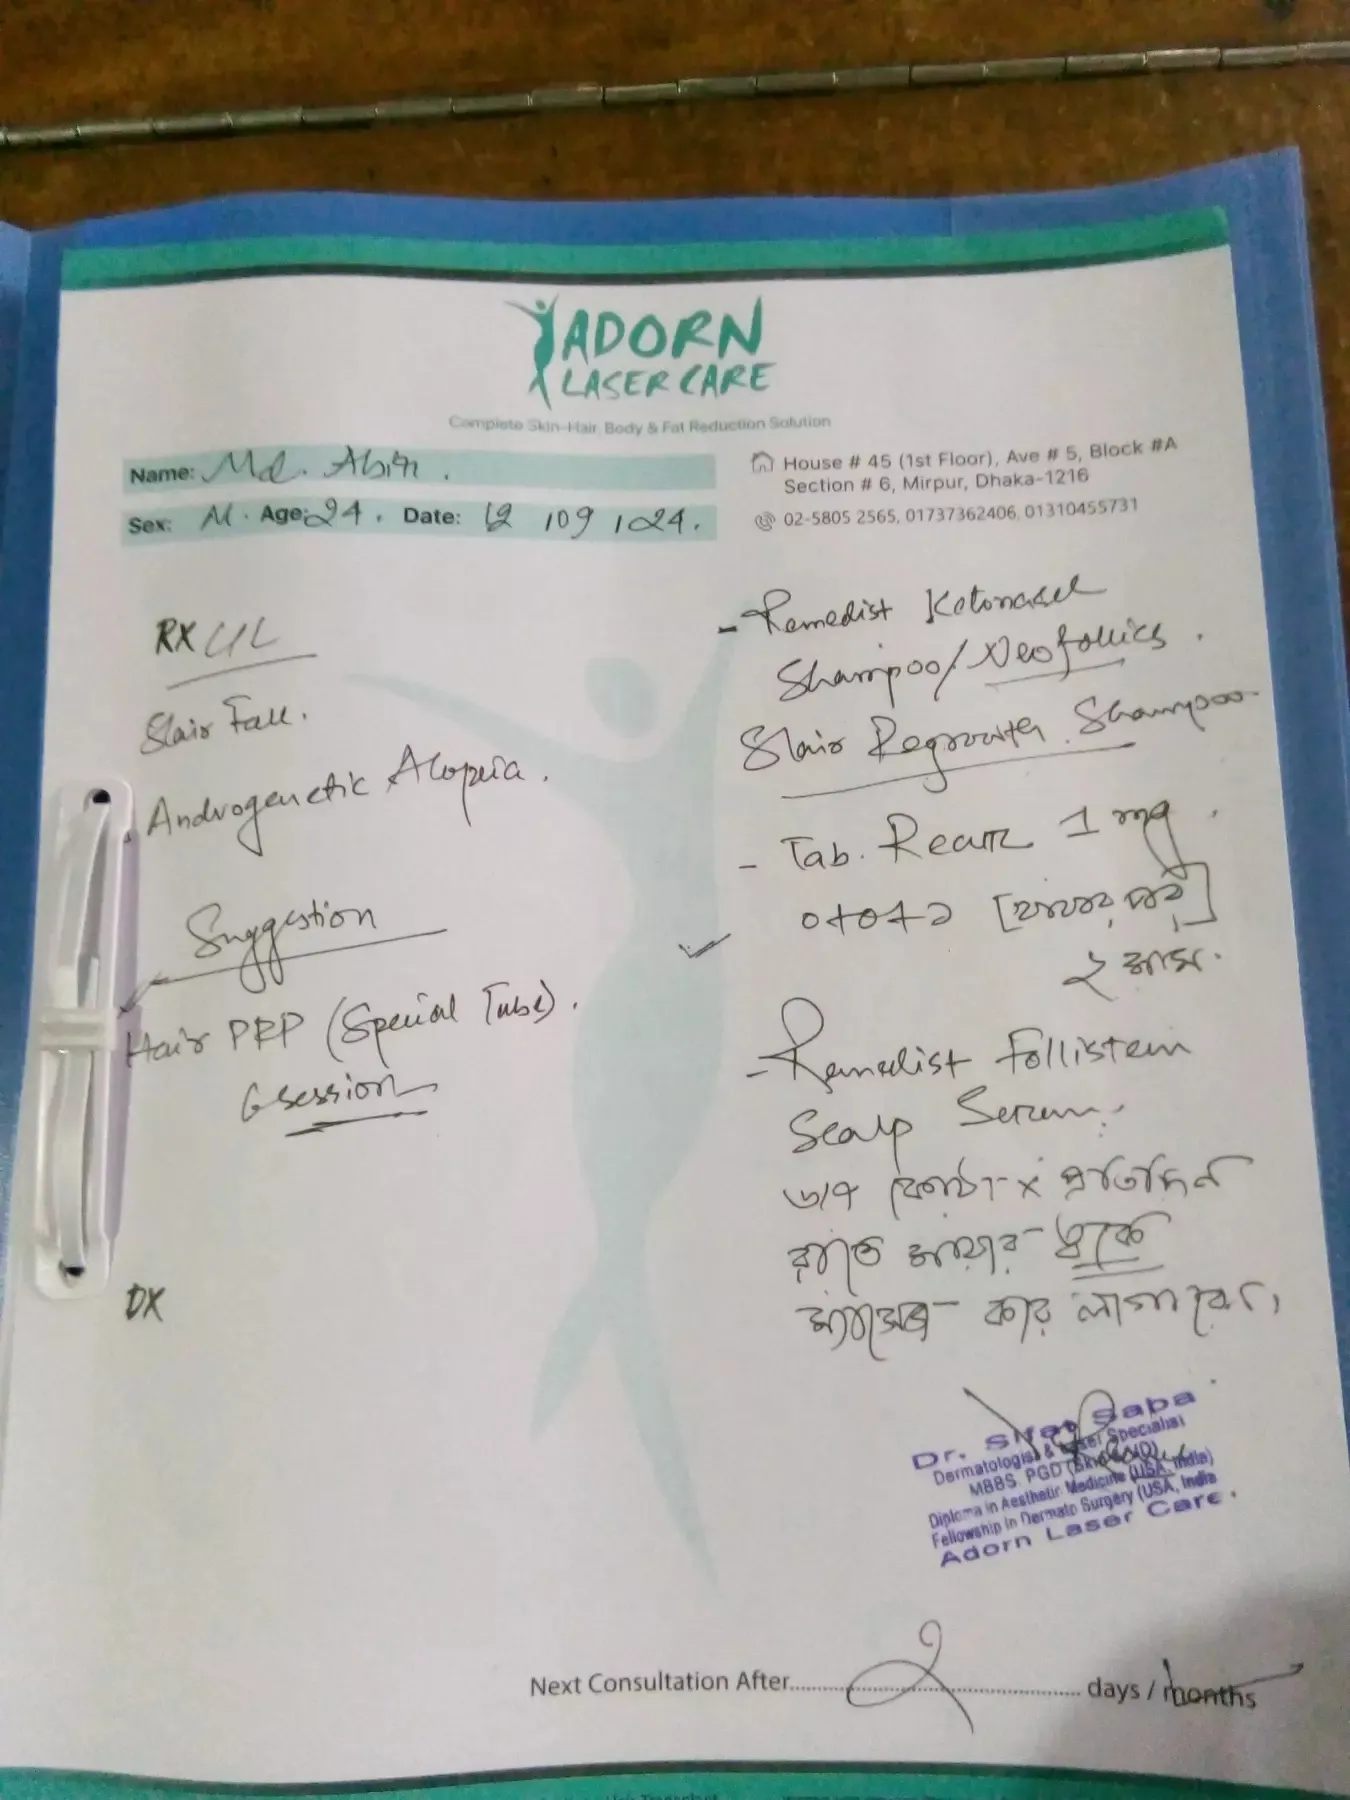 ADORN
LASER CARE
Complete Skin-Hair, Body & Fat Reduction Solution
Name: Md. Abir.
Sex: M. Age: 24. Date: 12 / 09 / 24.
House # 45 (1st Floor), Ave # 5, Block #A
Section # 6, Mirpur, Dhaka-1216
02-5805 2565, 01737362406, 01310455731
RX
Hair Fall.
Androgenetic Alopecia.
Suggestion
Hair PRP (Special Tube).
6 session
DX
- Remedist Ketonasel
Shampoo/Neofollics.
Hair Regrowth Shampoo
- Tab. Recur 1 mg.
০+০+১ [খাবার পর]
২ মাস.
- Remedist Follistem
Scalp Serum.
৬/৭ ফোটা x প্রতিদিন
রাতে মাথার ত্বকে
ম্যাসেজ করে লাগাবেন।
Dr. Saba
Dermatologist & Laser Specialist
MBBS, PGD
Diploma in Aesthetic Medicine (USA, India)
Fellowship in Dermato Surgery (USA, India
Adorn Laser Care.
Next Consultation After 2 days / months